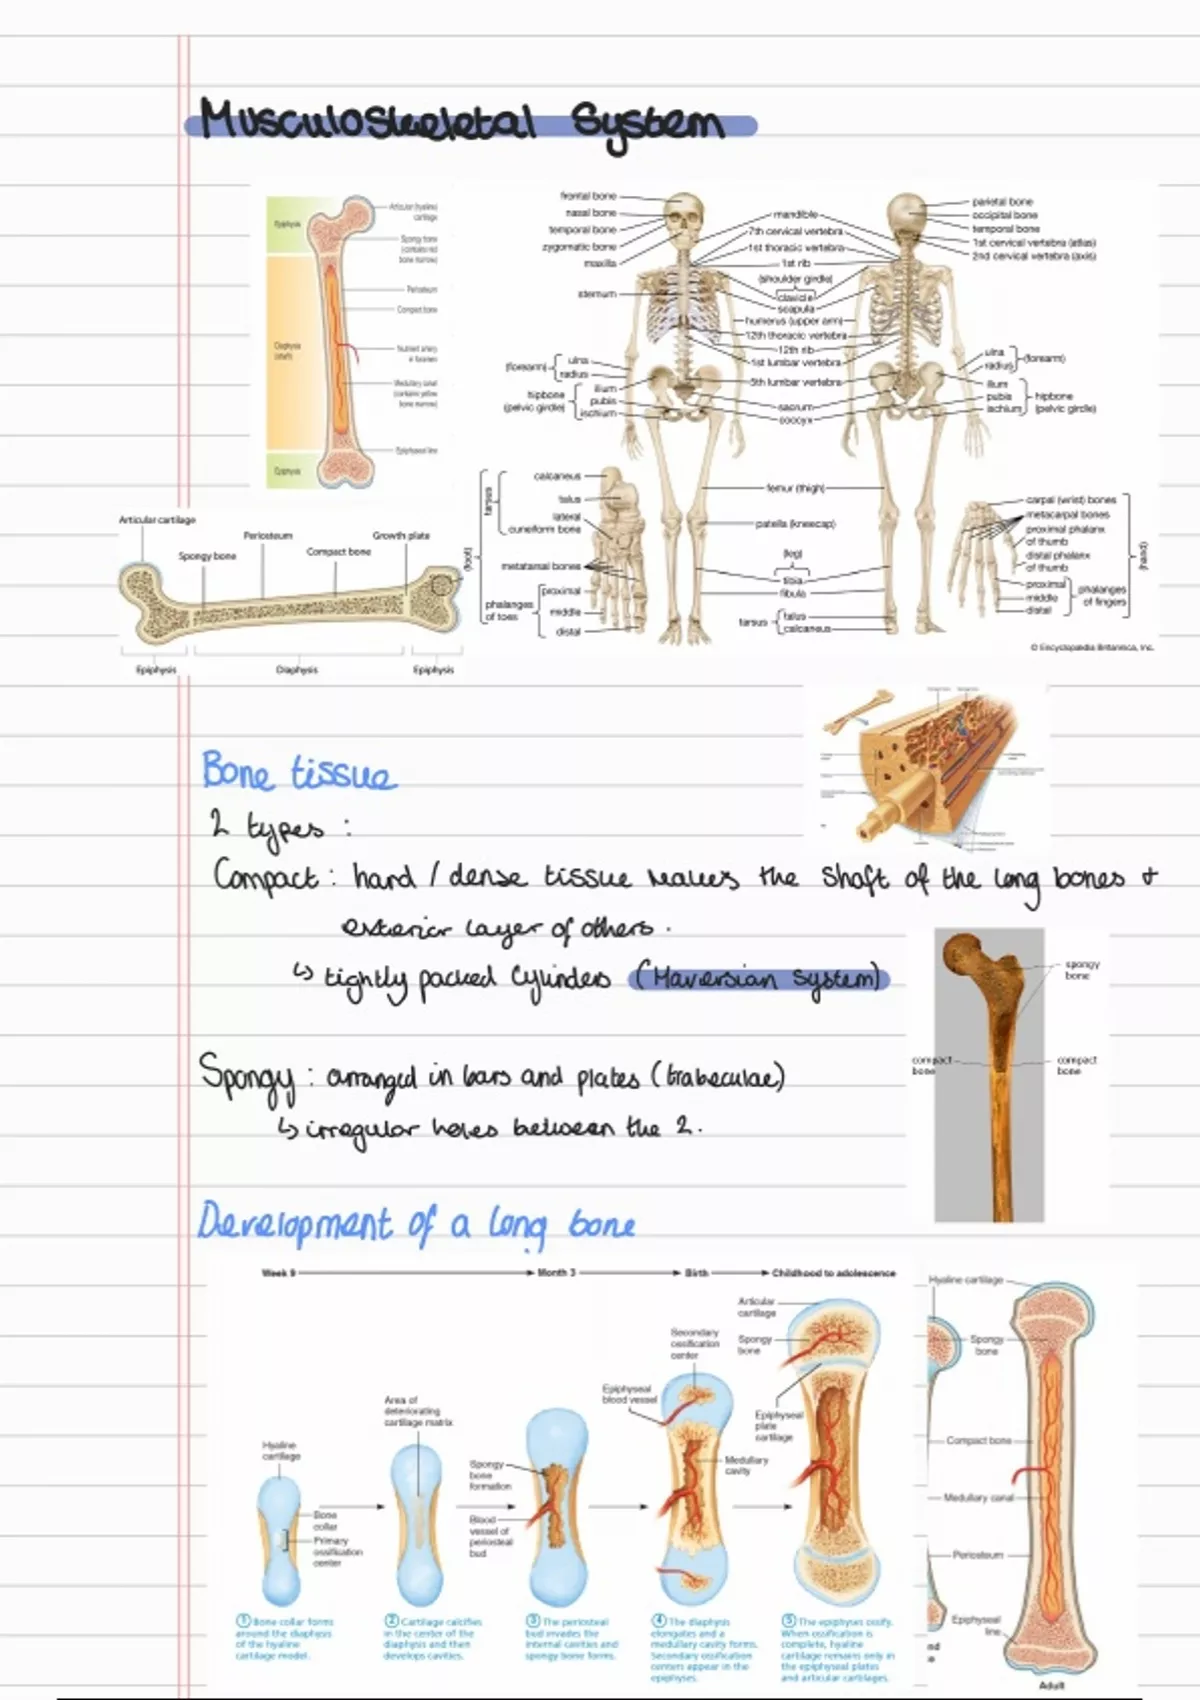 Musculoskeletal System
Epiphysis
Articular (hyaline)
cartilage
Spongy bone
(contains red
bone marrow)
Periosteum
Compact bone
Diaphysis
(shaft)
Nutrient artery
in foramen
Medullary canal
(contains yellow
bone marrow)
Epiphyseal line
Epiphysis
frontal bone
nasal bone
temporal bone
zygomatic bone
maxilla
sternum
(forearm)
ulna
radius
hipbone
(pelvic girdle)
ilium
pubis
ischium
mandible
7th cervical vertebra
1st thoracic vertebra
1st rib
(shoulder girdle)
clavicle
scapula
humerus (upper arm)
12th thoracic vertebra
12th rib
1st lumbar vertebra
5th lumbar vertebra
sacrum
coccyx
parietal bone
occipital bone
temporal bone
1st cervical vertebra (atlas)
2nd cervical vertebra (axis)
ulna
radius
(forearm)
ilium
pubis
ischium
hipbone
(pelvic girdle)
(foot)
tarsus
calcaneus
talus
lateral
cuneiform bone
metatarsal bones
phalanges
of toes
proximal
middle
distal
femur (thigh)
patella (kneecap)
(leg)
tibia
fibula
tarsus
talus
calcaneus
carpal (wrist) bones
metacarpal bones
proximal phalanx
of thumb
distal phalanx
of thumb
proximal
middle
distal
phalanges
of fingers
(hand)
© Encyclopædia Britannica, Inc.
Articular cartilage
Spongy bone
Periosteum
Compact bone
Growth plate
Epiphysis
Diaphysis
Epiphysis
Bone tissue
2 types :
Compact : hard / dense tissue makes the shaft of the long bones +
exterior layer of others .
↳ tightly packed Cylinders (Haversian system)
spongy
bone
compact
bone
compact
bone
Spongy : arranged in bars and plates (trabeculae)
↳ irregular holes between the 2.
Development of a long bone
Week 9
Month 3
Birth
Childhood to adolescence
Hyaline
cartilage
Bone
collar
Primary
ossification
center
Area of
deteriorating
cartilage matrix
Spongy
bone
formation
Blood
vessel of
periosteal
bud
Epiphyseal
blood vessel
Secondary
ossification
center
Medullary
cavity
Articular
cartilage
Spongy
bone
Epiphyseal
plate
cartilage
① Bone collar forms
around the diaphysis
of the hyaline
cartilage model.
② Cartilage calcifies
in the center of the
diaphysis and then
develops cavities.
③ The periosteal
bud invades the
internal cavities and
spongy bone forms.
④ The diaphysis
elongates and a
medullary cavity forms.
Secondary ossification
centers appear in the
epiphyses.
⑤ The epiphyses ossify.
When ossification is
complete, hyaline
cartilage remains only in
the epiphyseal plates
and articular cartilages.
Hyaline cartilage
Spongy
bone
Compact bone
Medullary canal
Periosteum
Epiphyseal
line
Adult